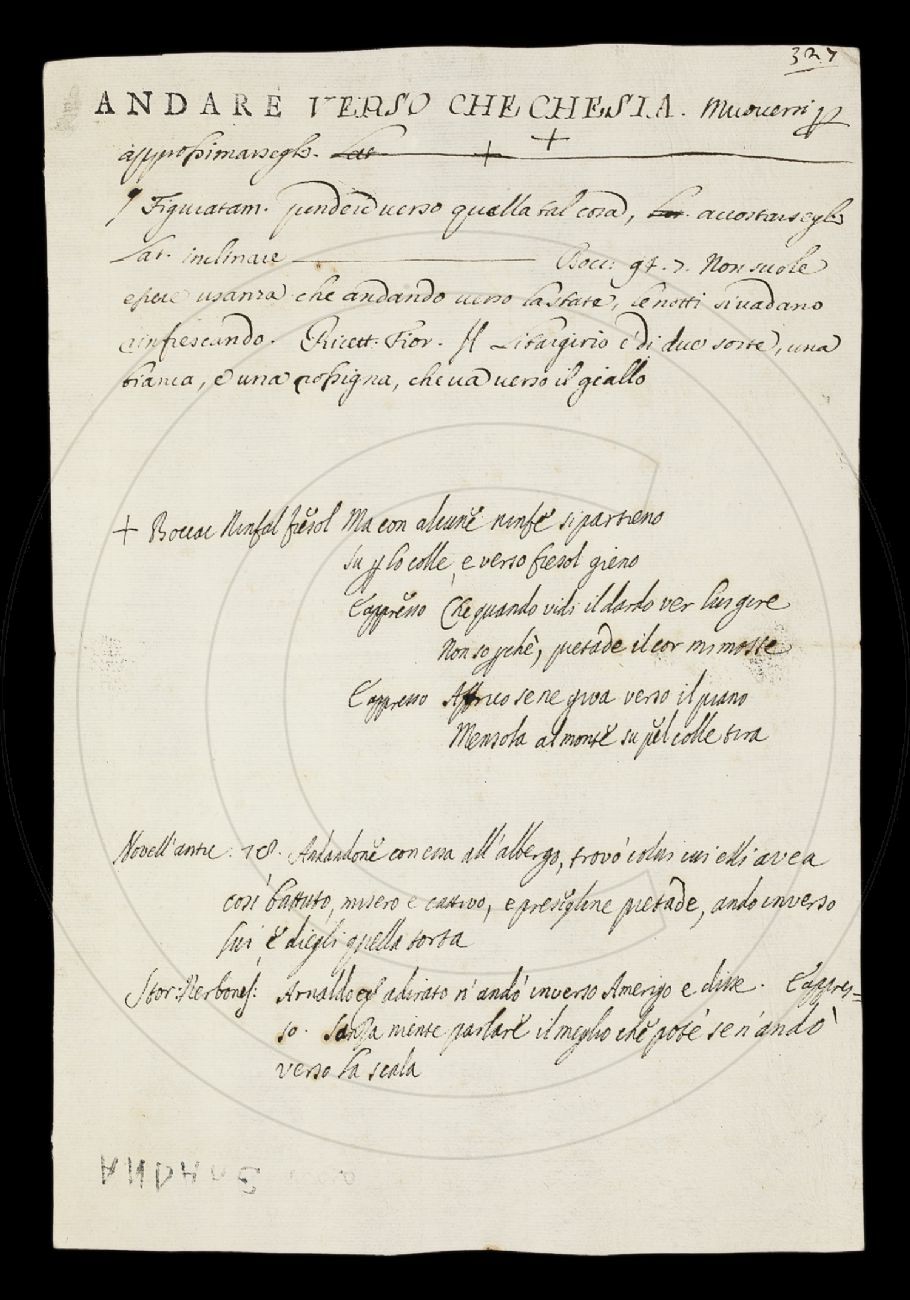 327
ANDARE VERSO CHE CHESIA. Muoversi p
approssimarsegli. Lat.
¶ Figuratam. pendere verso quella tal cosa, Lat. accostarsegli
Lat. inclinare Bocc: 97. 7. Non suole
essere usanza che andando verso la state, le notti si vadano
rinfrescando. Ricett. Fior. Il Litargirio è di due sorte, una
bianca, e una rossigna, che va verso il giallo
+ Boccac Ninfal fiesol Ma con alcune ninfe si partieno
su p lo colle, e verso fiesol gieno
E appresso Che quando vidi il dardo ver lui gire
Non so pchè, pietade il cor mi mosse
E appresso Affrico se ne giva verso il piano
Mensola al monte su pel colle tira
Novell'antic. 78. Andandone con essa all'albergo, trovò colui cui elli avea
così battuto, misero e cattivo, e preseglene pietade, andò inverso
lui e diegli quella torta
Stor: Nerbones: Arnaldo adirato n'andò inverso Amerigo e disse. E appres=
so. Sanza niente parlare il meglio che potè se n'andò
verso la scala
ANDARE